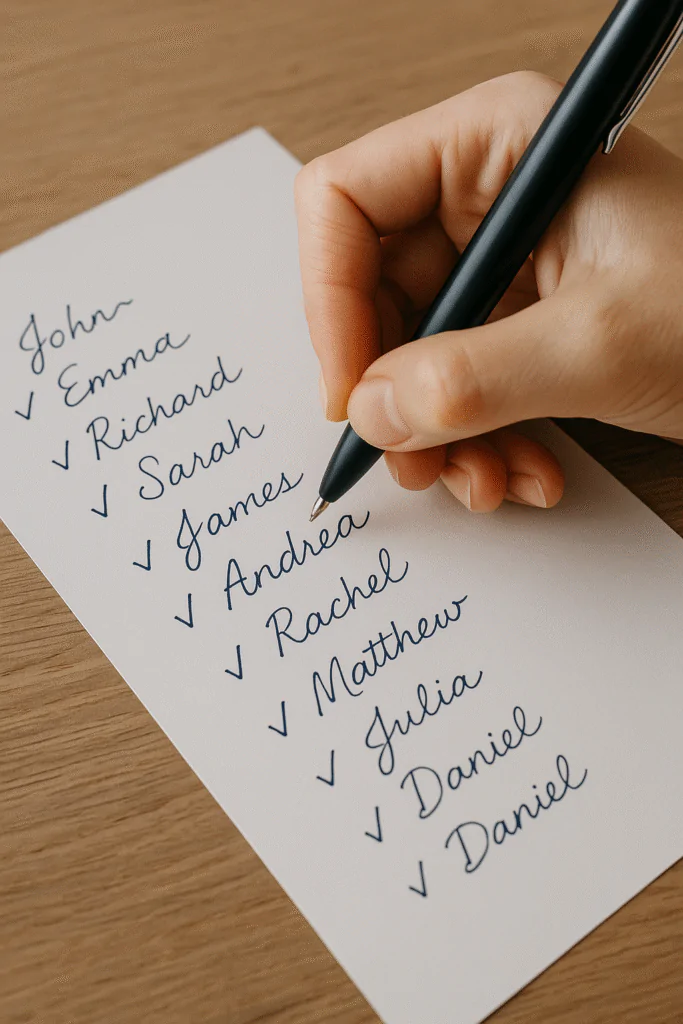 John
✓ Emma
✓ Richard
✓ Sarah
✓ James
✓ Andrea
✓ Rachel
✓ Matthew
✓ Julia
✓ Daniel
✓ Daniel